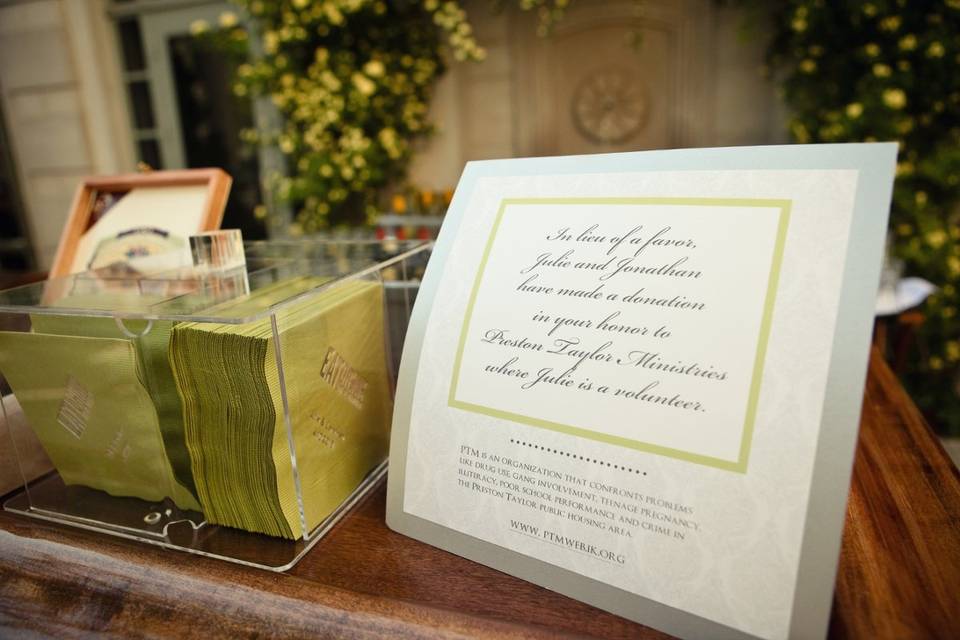 In lieu of a favor,
Julie and Jonathan
have made a donation
in your honor to
Preston Taylor Ministries
where Julie is a volunteer.
PTM is an organization that confronts problems
like drug use, gang involvement, teenage pregnancy,
illiteracy, poor school performance and crime in
the Preston Taylor public housing area.
www.ptmwerik.org